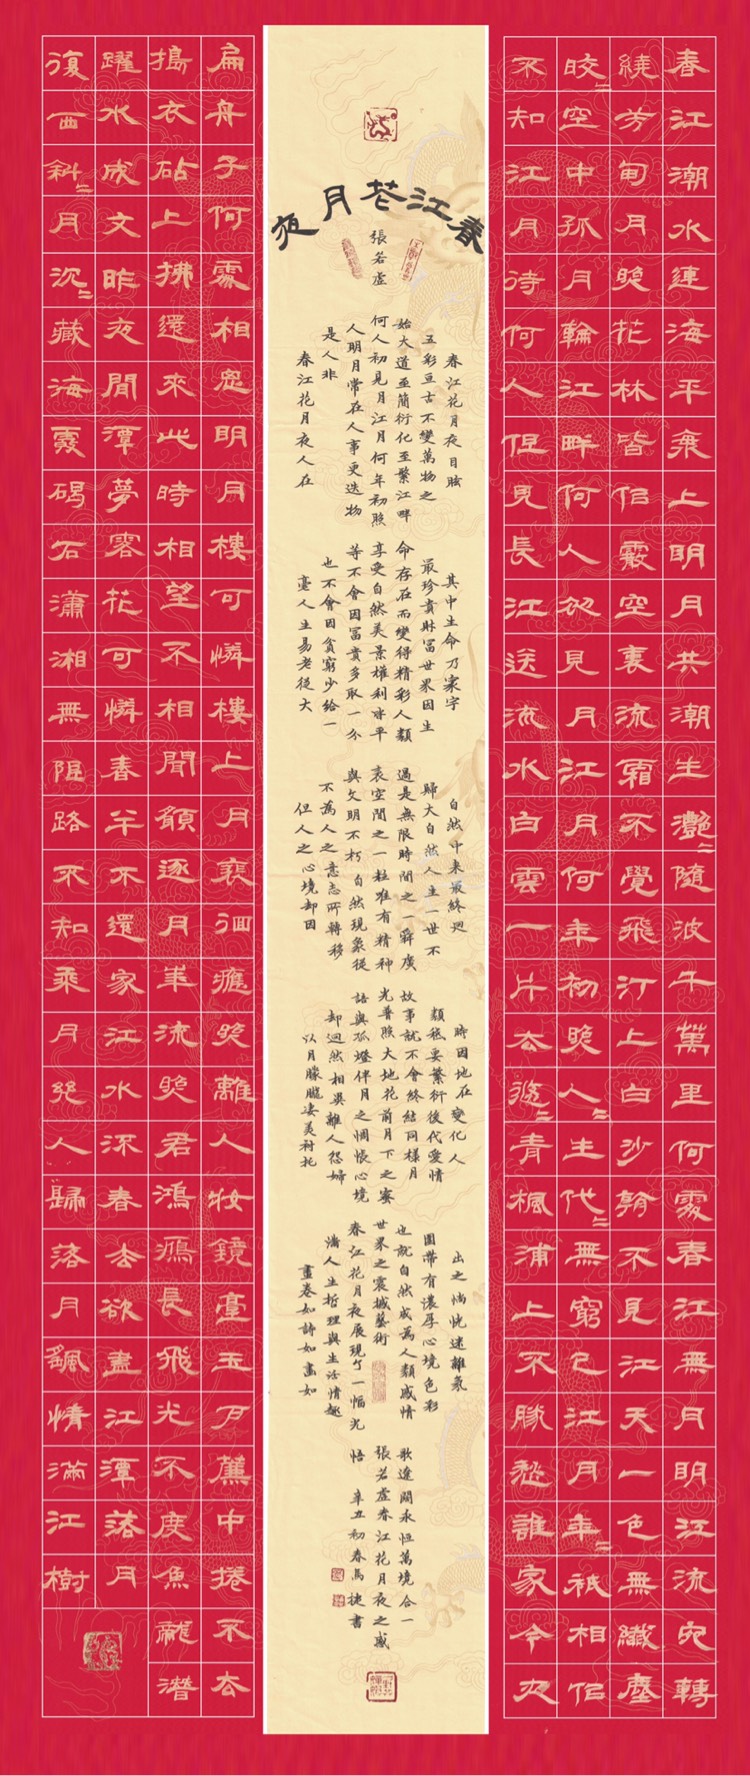 春江潮水連海平海上明月共潮生灧〻隨波千萬里何處春江無月明江流宛轉
繞芳甸月照花林皆似霰空裏流霜不覺飛汀上白沙看不見江天一色無纖塵
皎〻空中孤月輪江畔何人初見月江月何年初照人〻生代〻無窮已江月年〻衹相似
不知江月待何人但見長江送流水白雲一片去悠〻青楓浦上不勝愁誰家今夜
春江花月夜
張若虛
春江花月夜目眩
五彩亘古不變萬物之
始大道至簡衍化至繁江畔
何人初見月江月何年初照
人明月常在人事更迭物
是人非
春江花月夜人在
其中生命乃寰宇
最珍貴財富世界因生
命存在而變得精彩人類
享受自然美景權利水平
等不會因富貴多取一分
也不會因貧窮少給一
毫人生易老從大
自然中來最終迴
歸大自然人生一世不
過是無限時間之一瞬廣
袤空間之一粒唯有精神
與文明不朽自然現象從
不為人之意志所轉移
但人之心境却因
時因地在變化人
類秖要繁衍後代愛情
故事就不會終結同樣月
光普照大地花前月下之蜜
語與孤燈伴月之惆悵心境
却迥然相異離人怨婦
以月朦朧淒美襯托
出之惝恍迷離氛
圍帶有濃厚心境色彩
也就自然成為人類感情
世界之震撼藝術
春江花月夜展現了一幅充
滿人生哲理與生活情趣
畫卷如詩如畫如
歌邃闊永恒萬境合一
張若虛春江花月夜之感
悟 辛丑初春馬捷書
扁舟子何處相思明月樓可憐樓上月裴徊應照離人妝鏡臺玉戶簾中捲不去
搗衣砧上拂還來此時相望不相聞願逐月華流照君鴻雁長飛光不度魚龍潛
躍水成文昨夜閒潭夢落花可憐春半不還家江水流春去欲盡江潭落月
復西斜〻月沉〻藏海霧碣石瀟湘無限路不知乘月幾人歸落月搖情滿江樹